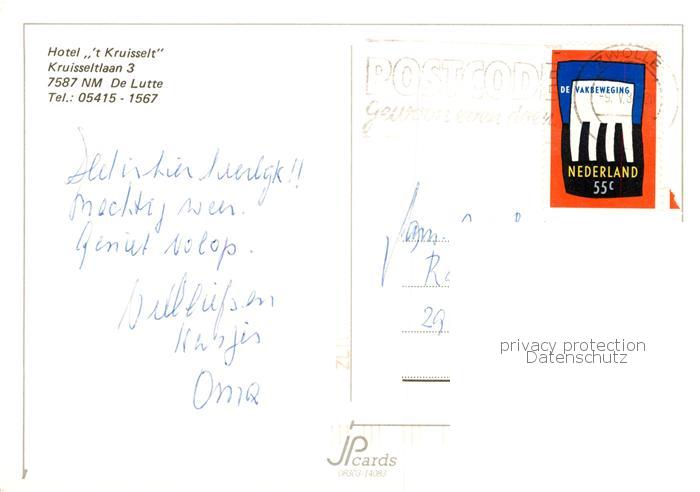 Hotel ,,'t Kruisselt"
Kruisseltlaan 3
7587 NM De Lutte
Tel.: 05415 - 1567
Het is hier heerlijk!!
Prachtig weer.
Geniet volop.
Kusjes
Oma
POSTCODE
gewoon even doen
ZWOLLE
DE VAKBEWEGING
NEDERLAND
55c
Fam.
29
privacy protection
Datenschutz
JP cards
08303-14083